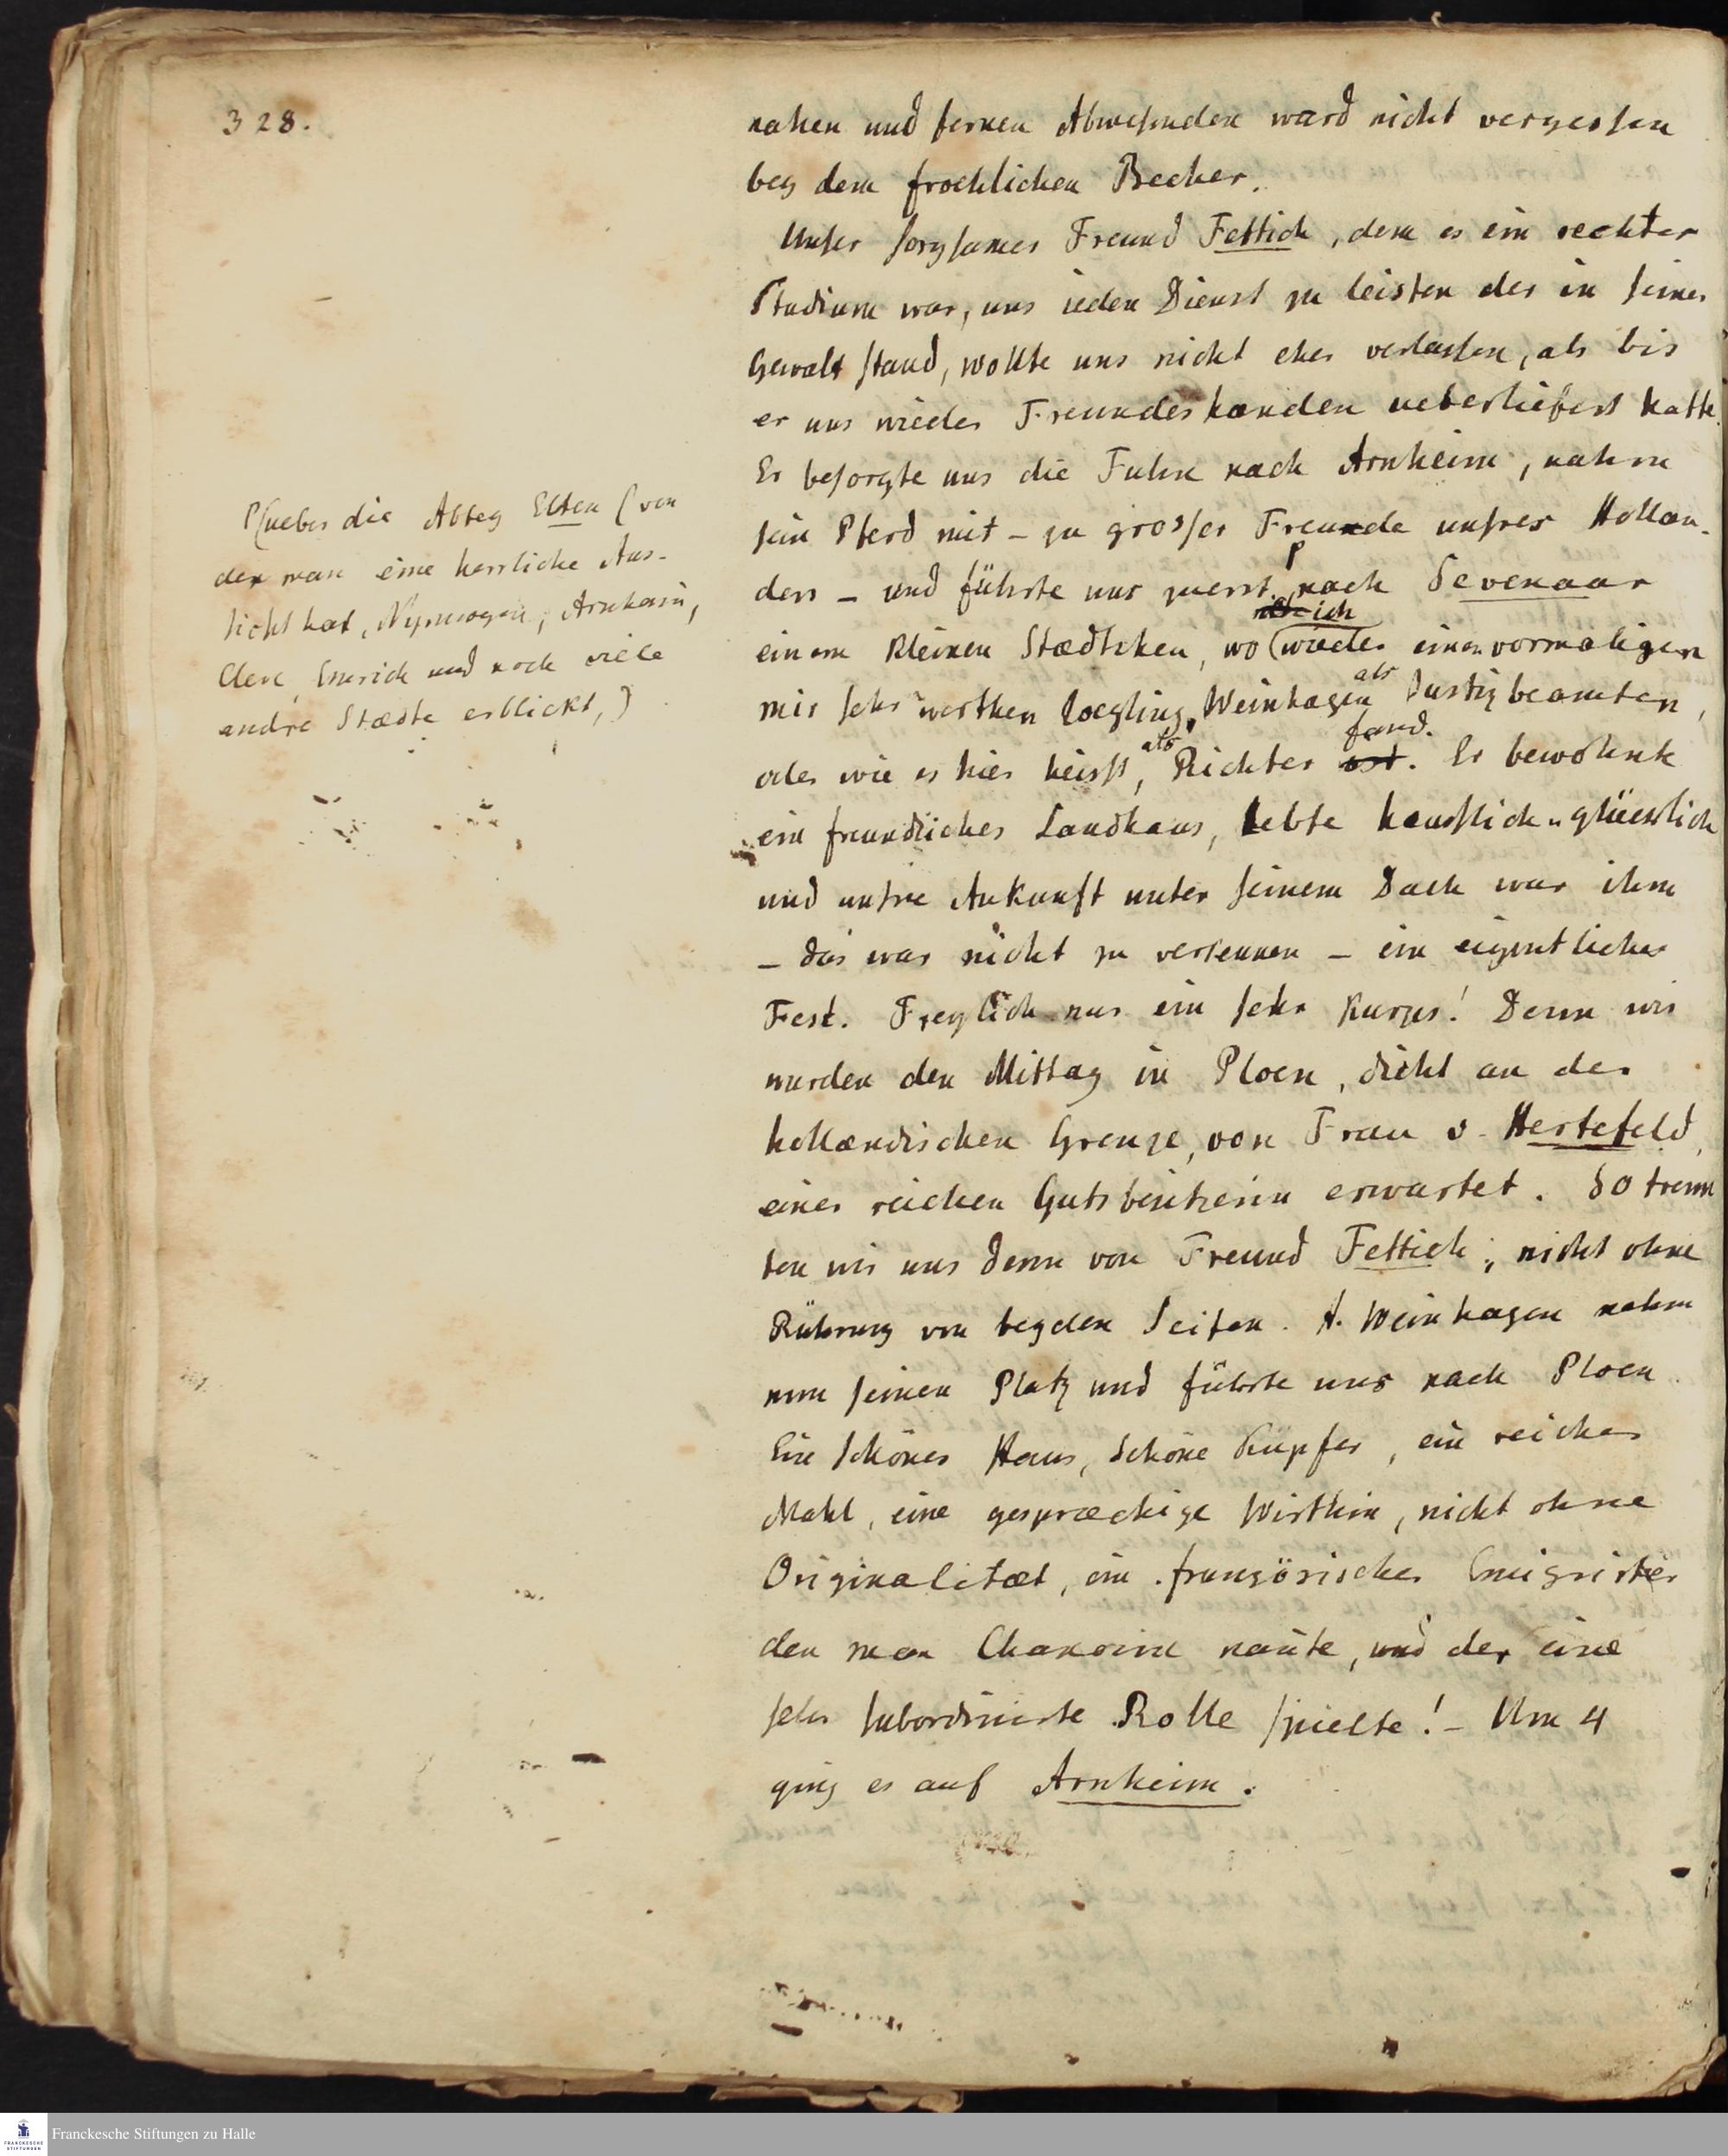 328.
nahen und fernen Abwesenden ward nicht vergessen
bey dem froehlichen Becher.
Unser sorgsamer Freund Fettich, dem es ein rechter
Studium war, uns ieden Dienst zu leisten der in seiner
Gewalt stand, wollte uns nicht eher verlassen, als bis
er uns wieder Freundeshanden ueberliefert hatte.
Er besorgte uns die Fuhre nach Arnheim, nahm
sein Pferd mit – zu grosser Freude unsres Hollan-
ders – und führte uns zuerst nach Sevenaar
einem kleinen Stædtchen, wo ich wieder einen vormaligen
mir sehr werthen Zoegling, Weinhagen als Justizbeamten,
oder wie es hier heisst, als Richter fand. Er bewohnte
ein freundliches Landhaus, lebte haeuslich u. glücklich
und unsre Ankunft unter seinem Dach war ihm
– das war nicht zu verkennen – ein eigentliches
Fest. Freylich nur ein sehr kurzes! Denn wir
wurden den Mittag in Ploen, dicht an der
hollændischen Grenze, von Frau v. Hertefeld,
einer reichen Gutsbesitzerin erwartet. So trenn
ten wir uns denn von Freund Fettich; nicht ohne
Rührung von beyden Seiten. H. Weinhagen nahm
nun seinen Platz und führte uns nach Ploen.
Ein schönes Haus, schöne Kupfer, ein reiches
Mahl, eine gespræchige Wirthin, nicht ohne
Originalitæt, ein französischer Emigrirter
den man Chanoine nante, und der eine
sehr subordinirte Rolle spielte! – Um 4
ging es auf Arnheim.
P(ueber die Abtey Elten (von
der man eine herrliche Aus-
sicht hat, Nymwegen, Arnheim,
Cleve, Emrich und noch viele
andre Stædte erblickt,)
Franckesche Stiftungen zu Halle